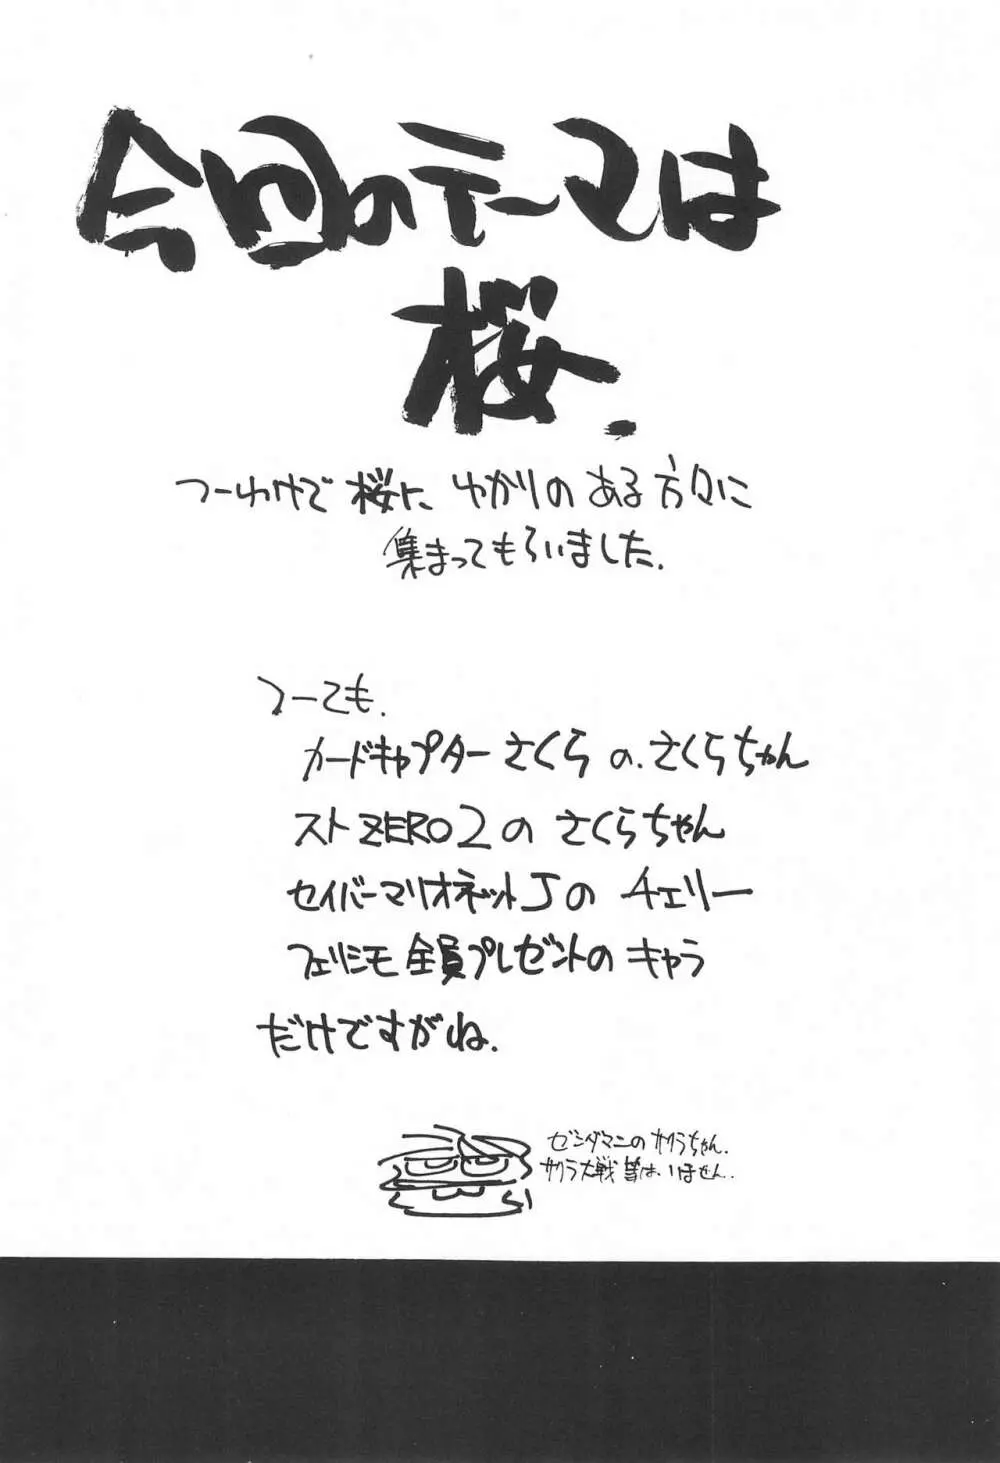 今回のテーマは
桜.
つーわけで 桜に ゆかりの ある 方々に
集まってもらいました.
つーても.
カードキャプター さくら の. さくらちゃん
ストZERO2の さくらちゃん
セイバーマリオネットJの チェリー
フェリシモ 全員プレゼントの キャラ
だけですがね.
ゼンダマンの サクラちゃん.
サクラ大戦 等は、いません.